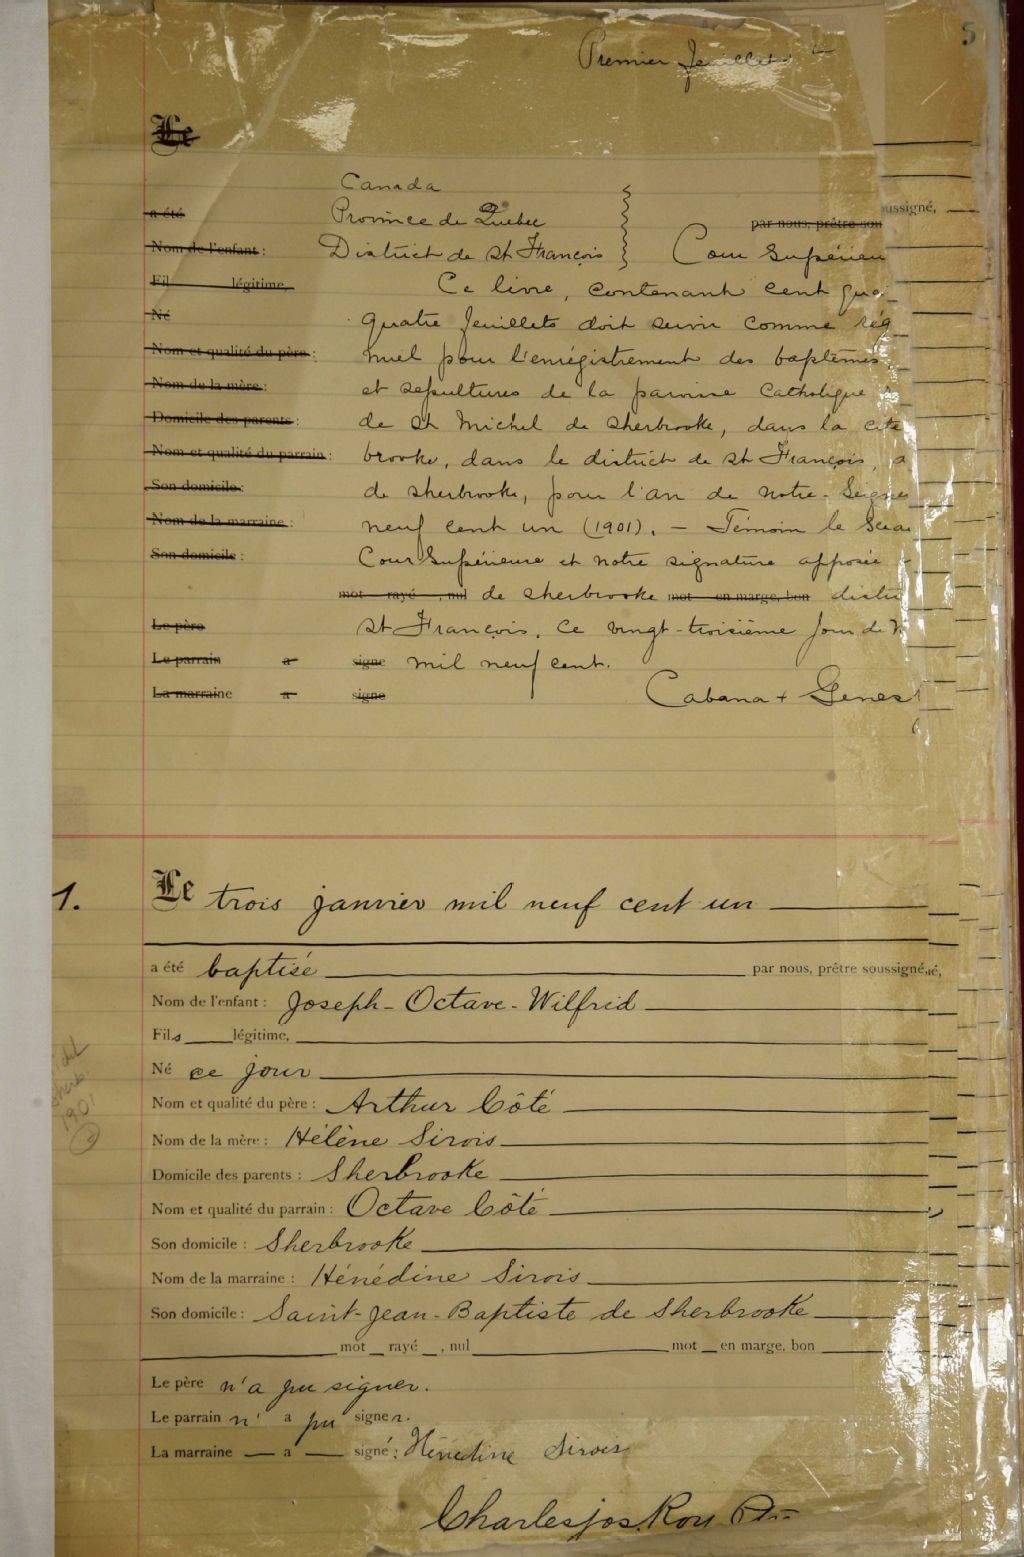 5
Premier feuillet
Le
Canada
a été Province de Quebec par nous, prêtre sou ussigné,
Nom de l'enfant : District de St François Cour Supérieu
Fil légitime, Ce livre, contenant cent qua
Né quatre feuillets doit servir comme rég
Nom et qualité du père : nuel pour l'enrégistrement des baptêmes
Nom de la mère : et sepultures de la paroisse Catholique
Domicile des parents : de St Michel de Sherbrooke, dans la cité
Nom et qualité du parrain : brooke, dans le district de St François, a
Son domicile : de Sherbrooke, pour l'an de Notre-Seigne
Nom de la marraine : neuf cent un (1901). – Témoin le Sceau
Son domicile : Cour Supérieure et notre signature apposée
mot rayé , nul de Sherbrooke mot en marge, bon distri
Le père St François, ce vingt-troisième jour de N
Le parrain a signe mil neuf cent.
La marraine a signe Cabana + Genest
1. Le trois janvier mil neuf cent un
a été baptisé par nous, prêtre soussigné, né,
Nom de l'enfant : Joseph-Octave-Wilfrid
Fils légitime,
Né ce jour
Nom et qualité du père : Arthur Côté
1901
2
Nom de la mère : Hélène Sirois
Domicile des parents : Sherbrooke
Nom et qualité du parrain : Octave Côté
Son domicile : Sherbrooke
Nom de la marraine : Hénédine Sirois
Son domicile : Saint-Jean-Baptiste de Sherbrooke
mot rayé , nul mot en marge, bon
Le père n'a pu signer.
Le parrain n' a pu signer.
La marraine — a — signé : Hénédine Sirois
Charles jos. Roy Ptre